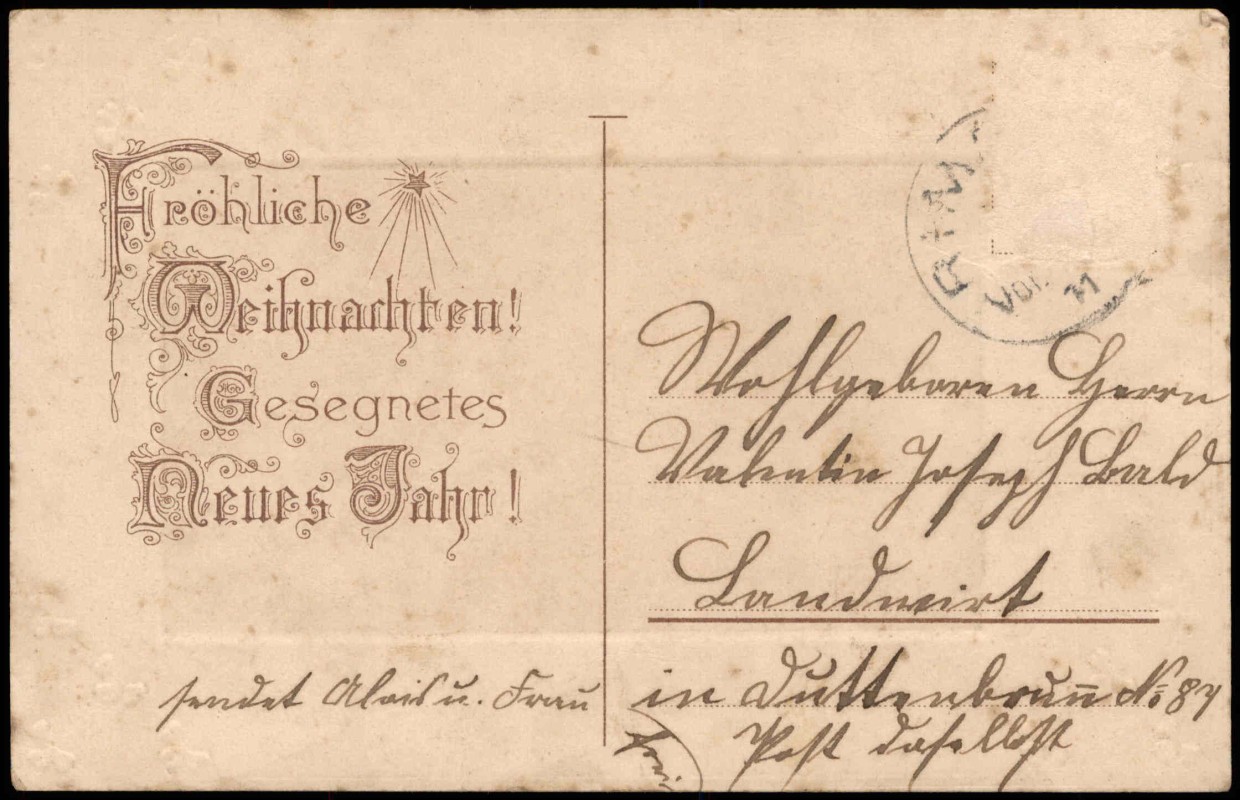 Fröhliche
Weihnachten!
Gesegnetes
Neues Jahr!
sendet Alois u. Frau
Wohlgeboren Herrn
Valentin Joseph Bald
Landwirt
in Duttenbrunn No 87
Post daselbst
frei